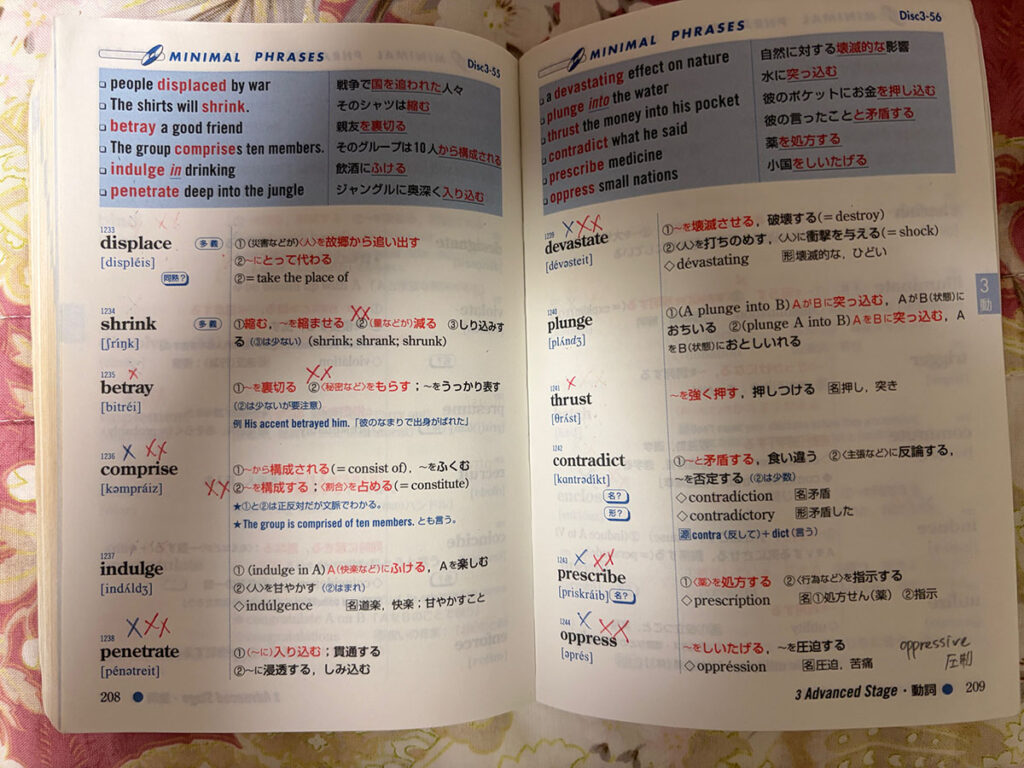 MINIMAL PHRASES Disc3-55
people displaced by war 戦争で国を追われた人々
The shirts will shrink. そのシャツは縮む
betray a good friend 親友を裏切る
The group comprises ten members. そのグループは10人から構成される
indulge in drinking 飲酒にふける
penetrate deep into the jungle ジャングルに奥深く入り込む
1233
displace 多義 ①(災害などが)〈人〉を故郷から追い出す
[displéis] ②~にとって代わる
同熟? ②= take the place of
1234
shrink 多義 ①縮む, ~を縮ませる ②(量などが)減る ③しり込みす
[ʃríŋk] る (③は少ない) (shrink; shrank; shrunk)
1235
betray ①~を裏切る ②〈秘密など〉をもらす；~をうっかり表す
[bitréi] (②は少ないが要注意)
例 His accent betrayed him.「彼のなまりで出身がばれた」
1236
comprise ①~から構成される(= consist of), ~をふくむ
[kəmpráiz] ②~を構成する；〈割合〉を占める(= constitute)
★①と②は正反対だが文脈でわかる。
★The group is comprised of ten members. とも言う。
1237
indulge ①(indulge in A) A(快楽など)にふける, Aを楽しむ
[indʌ́ldʒ] ②〈人〉を甘やかす (②はまれ)
◇indúlgence 名道楽, 快楽；甘やかすこと
1238
penetrate ①(~に)入り込む；貫通する
[pénətreit] ②~に浸透する, しみ込む
208
MINIMAL PHRASES Disc3-56
a devastating effect on nature 自然に対する壊滅的な影響
plunge into the water 水に突っ込む
thrust the money into his pocket 彼のポケットにお金を押し込む
contradict what he said 彼の言ったことと矛盾する
prescribe medicine 薬を処方する
oppress small nations 小国をしいたげる
1239
devastate ①~を壊滅させる, 破壊する(= destroy)
[dévəsteit] ②〈人〉を打ちのめす,〈人〉に衝撃を与える(= shock)
◇dévastating 形壊滅的な, ひどい
1240
plunge ①(A plunge into B) AがBに突っ込む, AがB(状態)に
[plʌ́ndʒ] おちいる ②(plunge A into B) AをBに突っ込む, A
をB(状態)におとしいれる
1241
thrust ~を強く押す, 押しつける 名押し, 突き
[θrʌ́st]
1242
contradict ①~と矛盾する, 食い違う ②〈主張など〉に反論する,
[kɑntrədíkt] ~を否定する (②は少数)
名? ◇contradíction 名矛盾
形? ◇contradictory 形矛盾した
源contra (反して)+ dict (言う)
1243
prescribe ①〈薬〉を処方する ②〈行為など〉を指示する
[priskráib] 名? ◇prescríption 名①処方せん(薬) ②指示
1244
oppress ~をしいたげる, ~を圧迫する
[əprés] ◇oppréssion 名圧迫, 苦痛
oppressive
圧制
3
動
3 Advanced Stage・動詞 209